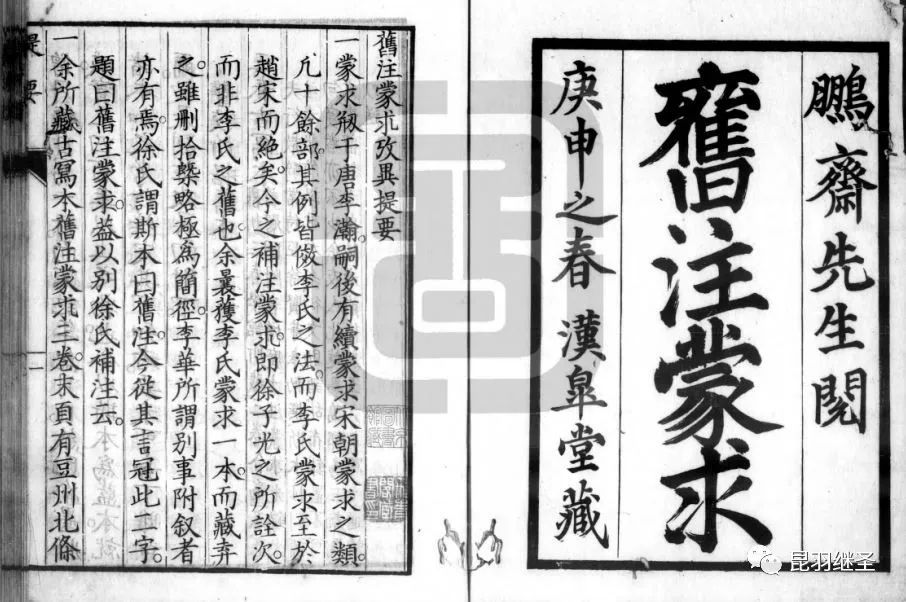 鵬齋先生閱
舊注蒙求
庚申之春 漢皐堂藏
舊注蒙求攷異提要
一蒙求刱于唐李瀚嗣後有續蒙求宋朝蒙求之類
凢十餘部其例皆倣李氏之法而李氏蒙求至於
趙宋而絕矣今之補注蒙求即徐子光之所詮次
而非李氏之舊也余曩獲李氏蒙求一本而藏弆
之雖刪拾槩略極爲簡徑李華所謂別事附叙者
亦有焉徐氏謂斯本曰舊注今從其言冠此二字
題曰舊注蒙求葢以別徐氏補注云
一余所藏古寫本舊注蒙求三卷末頁有豆州北條
提要
一
昆羽继圣